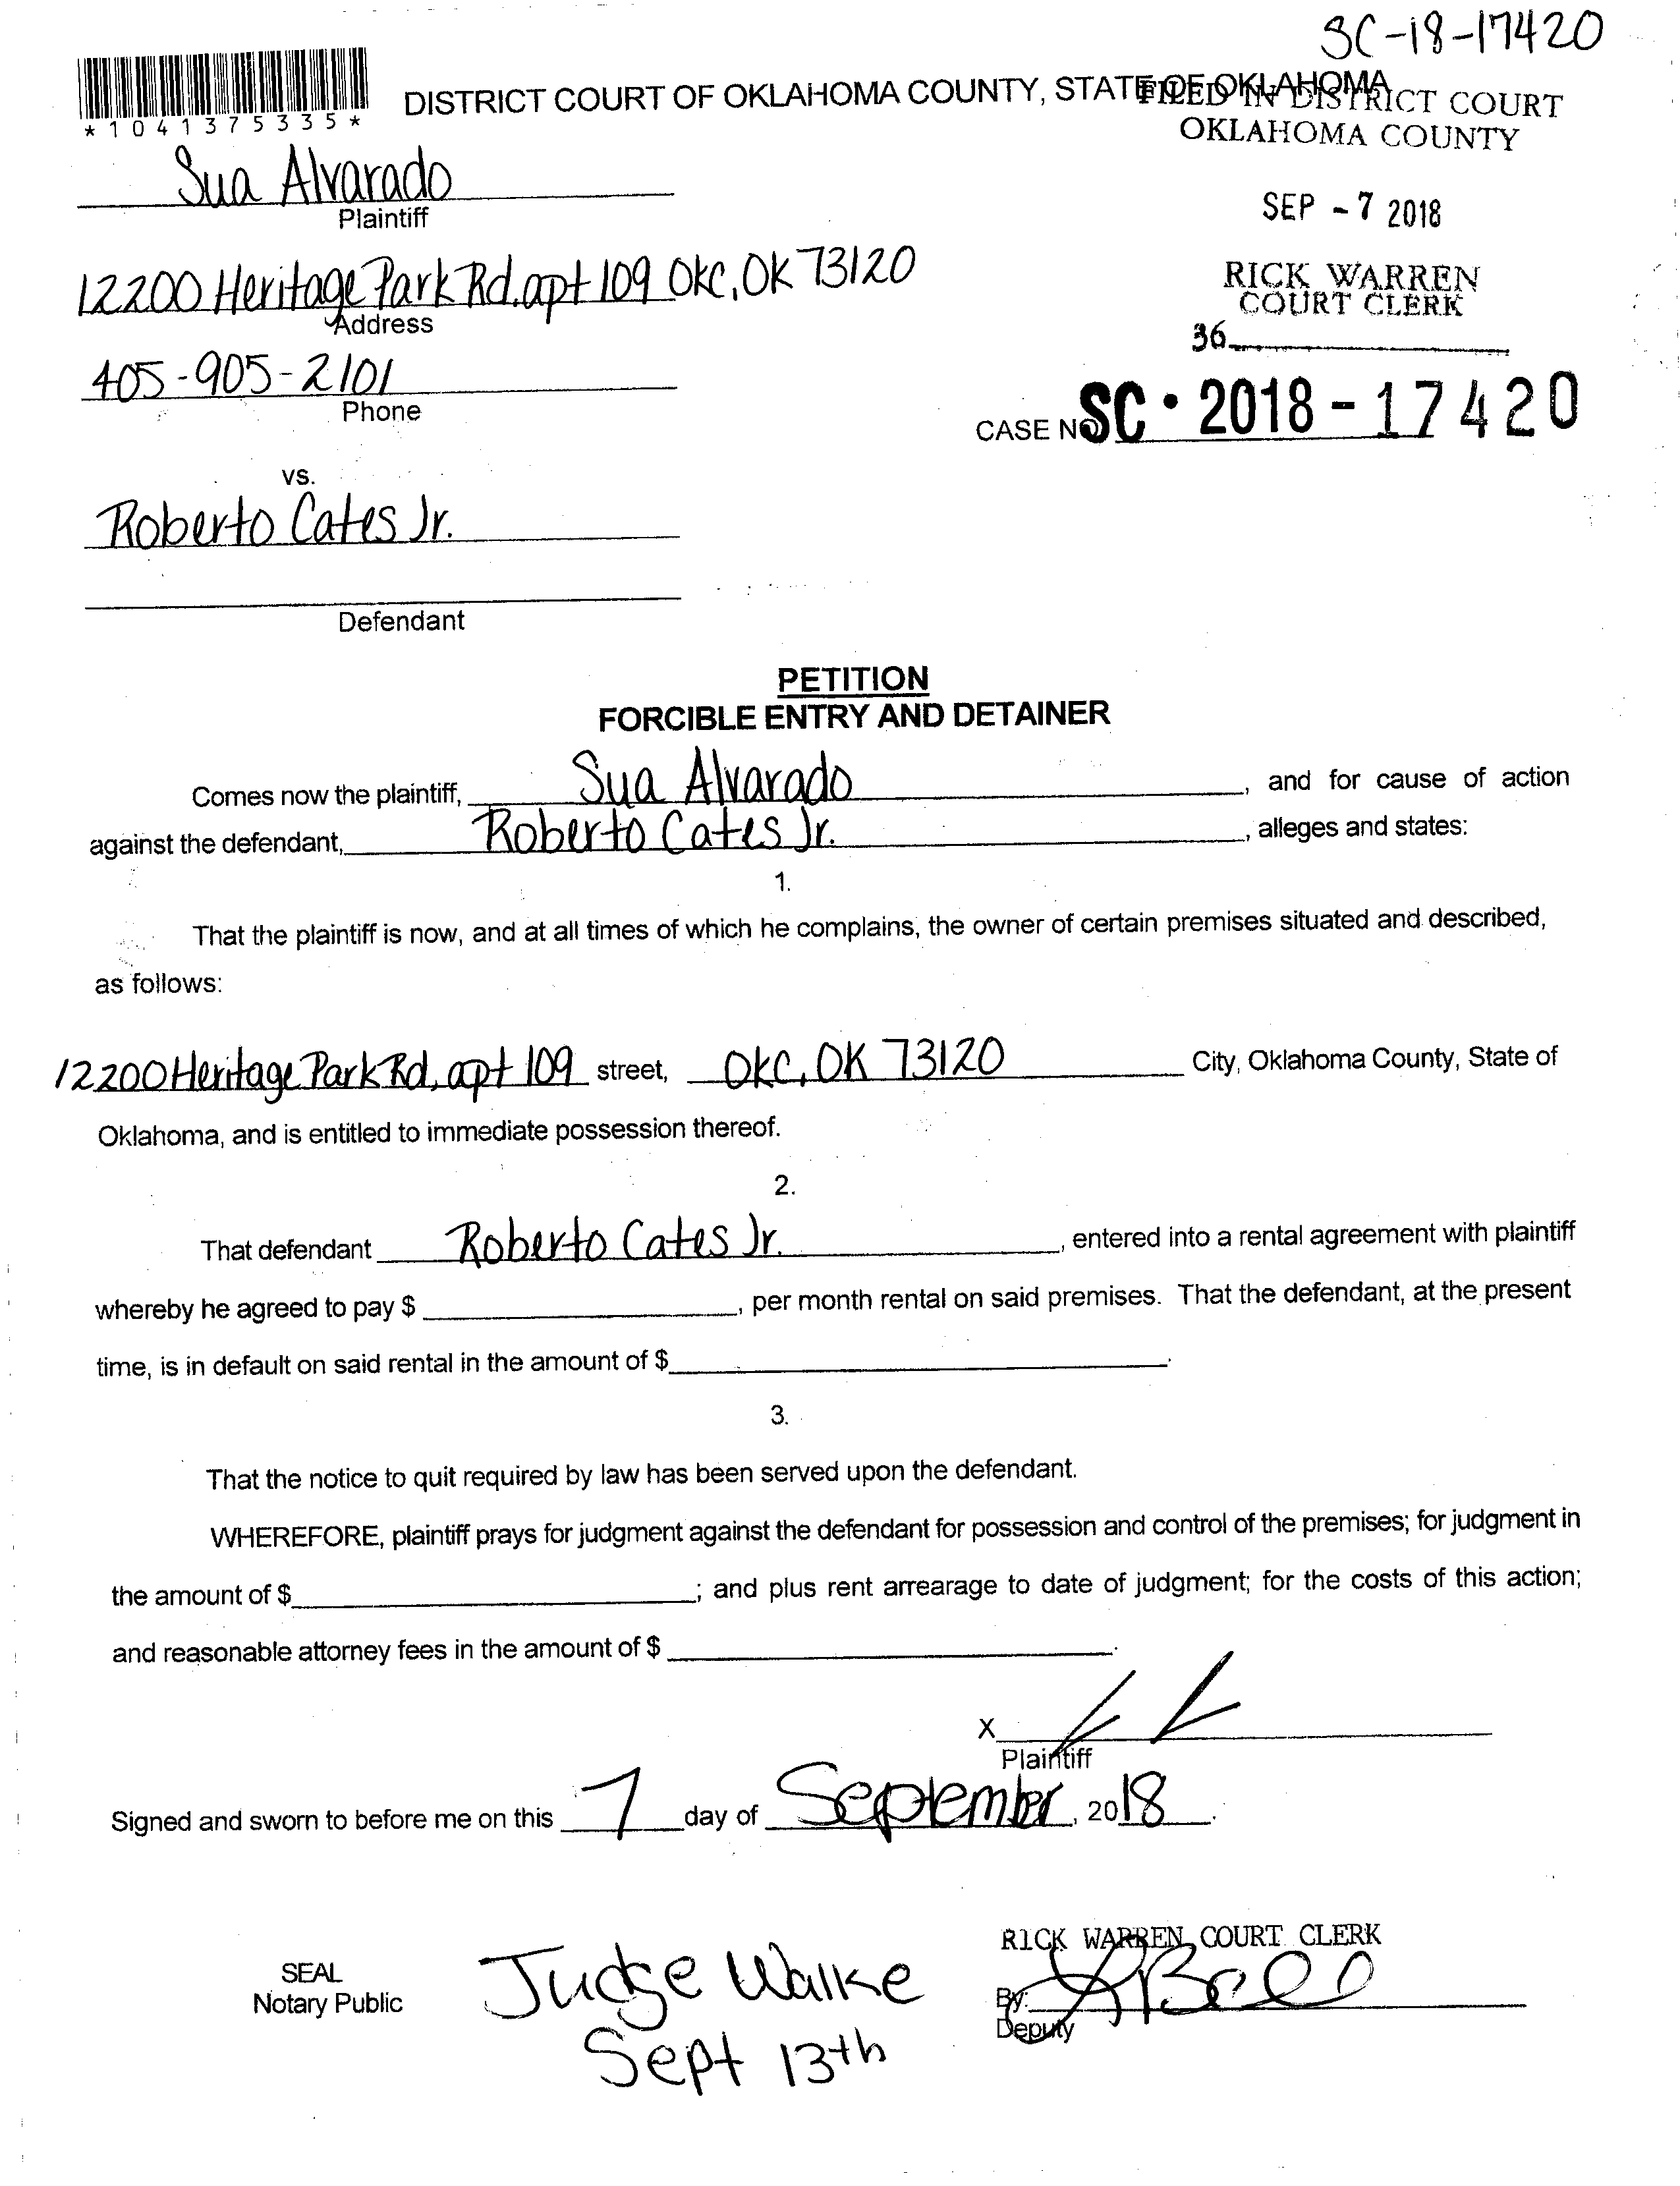 SC-18-17420
*1041375335*
DISTRICT COURT OF OKLAHOMA COUNTY, STATE OF OKLAHOMA
FILED IN DISTRICT COURT
OKLAHOMA COUNTY
Sua Alvarado
Plaintiff
SEP - 7 2018
12200 Heritage Park Rd. apt 109 OKC, OK 73120
Address
RICK WARREN
COURT CLERK
36
405-905-2101
Phone
CASE NO. SC • 2018 - 17420
vs.
Roberto Cates Jr.
Defendant
PETITION
FORCIBLE ENTRY AND DETAINER
Comes now the plaintiff, Sua Alvarado, and for cause of action
against the defendant, Roberto Cates Jr., alleges and states:
1.
That the plaintiff is now, and at all times of which he complains, the owner of certain premises situated and described,
as follows:
12200 Heritage Park Rd, apt 109 street, OKC, OK 73120 City, Oklahoma County, State of
Oklahoma, and is entitled to immediate possession thereof.
2.
That defendant Roberto Cates Jr., entered into a rental agreement with plaintiff
whereby he agreed to pay $ , per month rental on said premises. That the defendant, at the present
time, is in default on said rental in the amount of $ .
3.
That the notice to quit required by law has been served upon the defendant.
WHEREFORE, plaintiff prays for judgment against the defendant for possession and control of the premises; for judgment in
the amount of $ ; and plus rent arrearage to date of judgment; for the costs of this action;
and reasonable attorney fees in the amount of $ .
X
Plaintiff
Signed and sworn to before me on this 7 day of September, 2018.
RICK WARREN COURT CLERK
SEAL
Notary Public
Judge Walke
By:
Deputy
Sept 13th